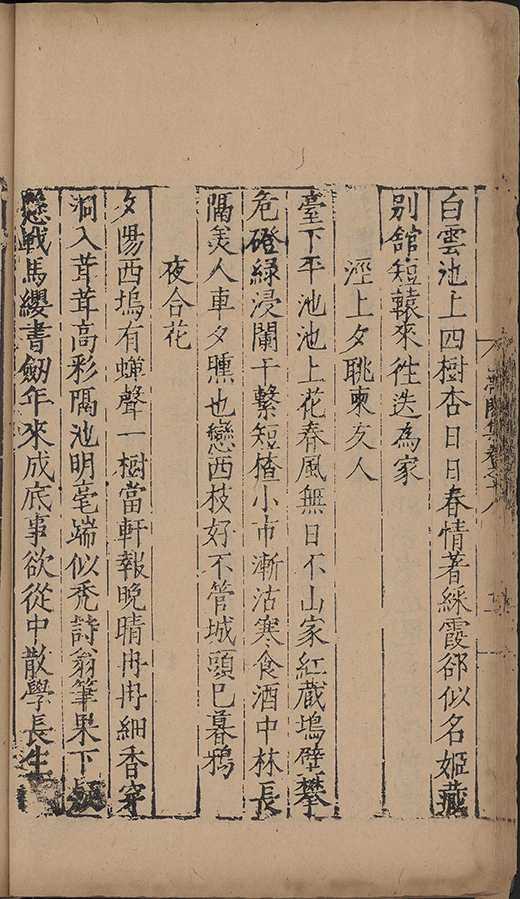 白雲池上四樹杏日日春情著綵霞卻似名姬藏
別舘短轅來徃迭為家
涇上夕眺柬友人
臺下平池池上花春風無日不山家紅藏塢壁攀
危磴綠浸闌干繫短楂小市漸沽寒食酒中林長
隔美人車夕曛也戀西枝好不管城頭已暮鴉
夜合花
夕陽西塢有蟬聲一樹當軒報晚晴冉冉細香穿
洞入茸茸高彩隔池明毫端似禿詩翁筆果下疑
懸戰馬纓書劒年來成底事欲從中散學長生